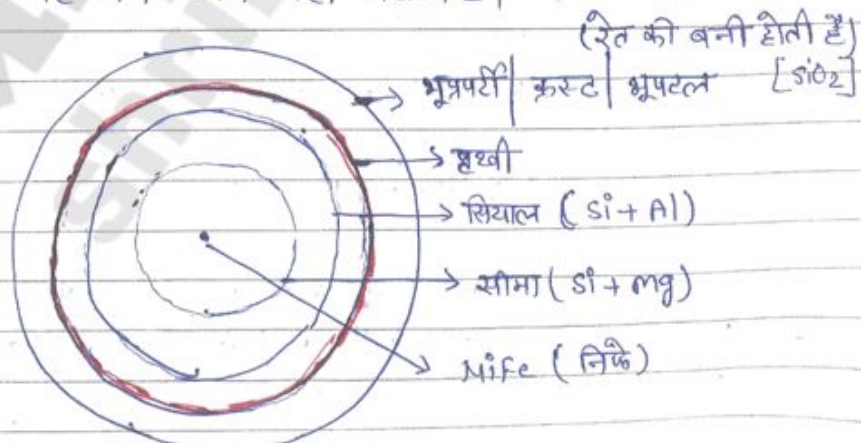 (रेत की बनी होती है)
भूप्रपर्टी | क्रस्ट | भूपटल [SiO2]
पृथ्वी
सियाल (Si + Al)
सीमा (Si + mg)
NiFe (निफे)